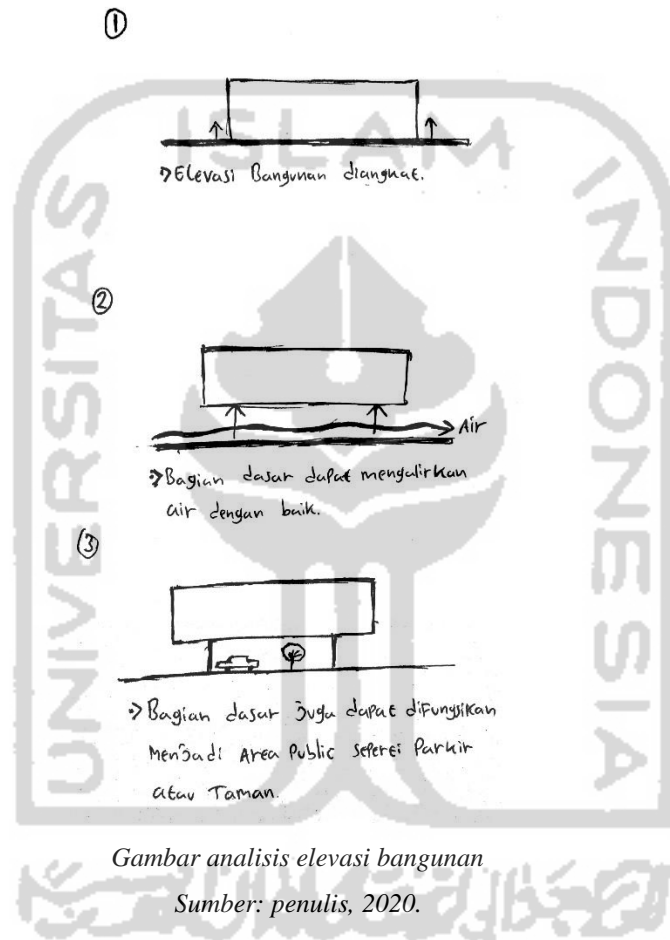 ①
→ Elevasi Bangunan diangkat.
②
Air
→ Bagian dasar dapat mengalirkan
air dengan baik.
③
→ Bagian dasar Juga dapat diFungsikan
MenJadi Area Public seperti Parkir
atau Taman.
Gambar analisis elevasi bangunan
Sumber: penulis, 2020.
UNIVERSITAS
ISLAM
INDONESIA